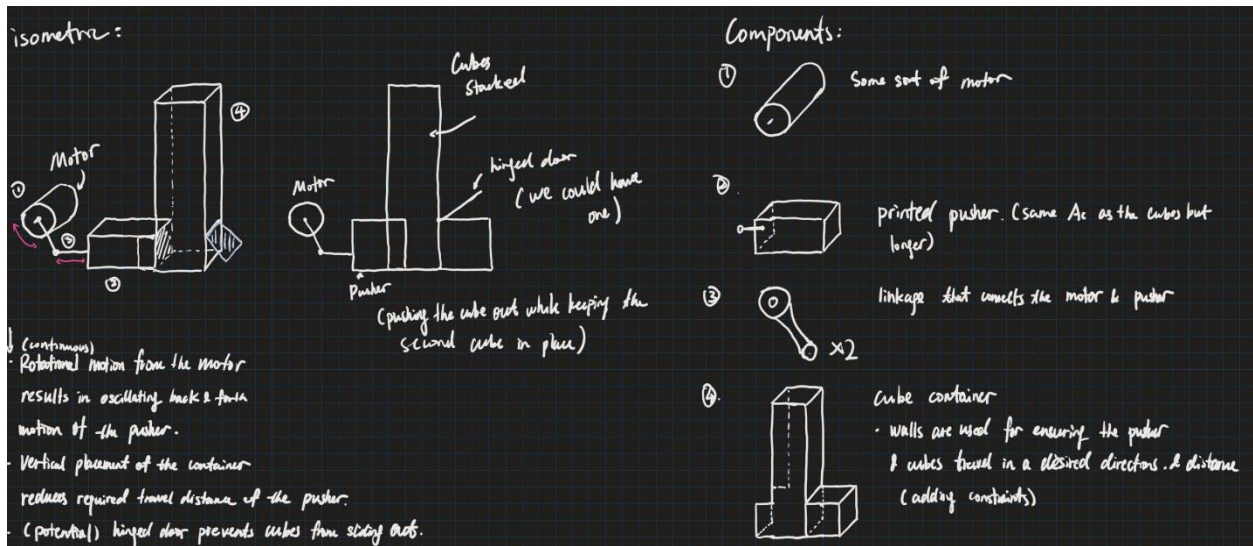 isometric:
Motor
①
③
②
④
Cubes
stacked
hinged door
(we could have
one)
Motor
Pusher
(pushing the cube out while keeping the
second cube in place)
(continuous)
· Rotational motion from the motor
results in oscillating back & forth
motion of the pusher.
· Vertical placement of the container
reduces required travel distance of the pusher.
· (potential) hinged door prevents cubes from sliding out.
Components:
① Some sort of motor
②. printed pusher. (same Ac as the cubes but
longer)
③ linkage that connects the motor & pusher
x2
④. cube container
· walls are used for ensuring the pusher
& cubes travel in a desired directions. & distance
(adding constraints)